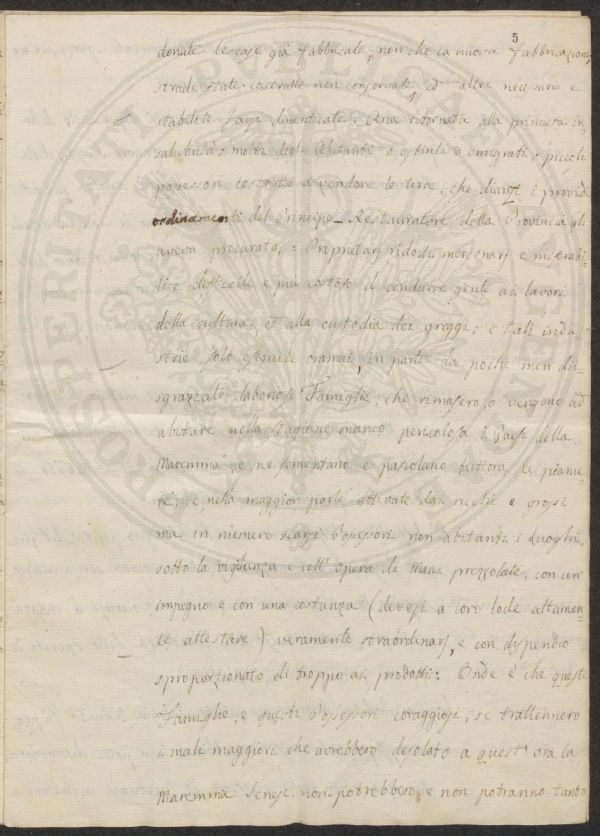 5
donate le case già fabbricate, non che la nuova fabbricazione,
strade state costrutte non conservate, ed altre necessarie e
stabilite farsi dimenticate: Aria ritornata alla primiera in-
salubrità: molti degli Abitanti o estinti o emigrati: piccoli
possessori costretti a vendere le terre, che dianzi i providi
ordinamenti del Principe Restauratore della Provincia gli
aveva procurato: Proprietarj ridotti mercenarj e miserabi-
li: difficile e più costoso il condurre gente ai lavori
della cultura, et alla custodia dei greggi; e tali indu-
strie solo eseguite oramai, in parte da poche men di-
sgraziate laboriose Famiglie, che rimasero, o vengono ad
abitare nella stagione manco pericolosa i Paesi della
Maremma, e ne sementano e pascolano tuttora le pianu-
re, e nella maggior parte attivate dai ricchi e grossi
ma in numero scarsi Possessori non abitanti i Luoghi,
sotto la vigilanza e coll' opera di mani prezzolate, con un
impegno e con una costanza (devesi a loro lode altamen-
te attestare) veramente straordinarj, e con dispendio
sproporzionato di troppo ai prodotti: Onde è che queste
Famiglie, e questi Possessori coraggiosi, se trattennero
i mali maggiori che avrebbero desolato a quest' ora la
Maremma Senese, non potrebbero, e non potranno tanto
PROSPERITATI PUBLICAE